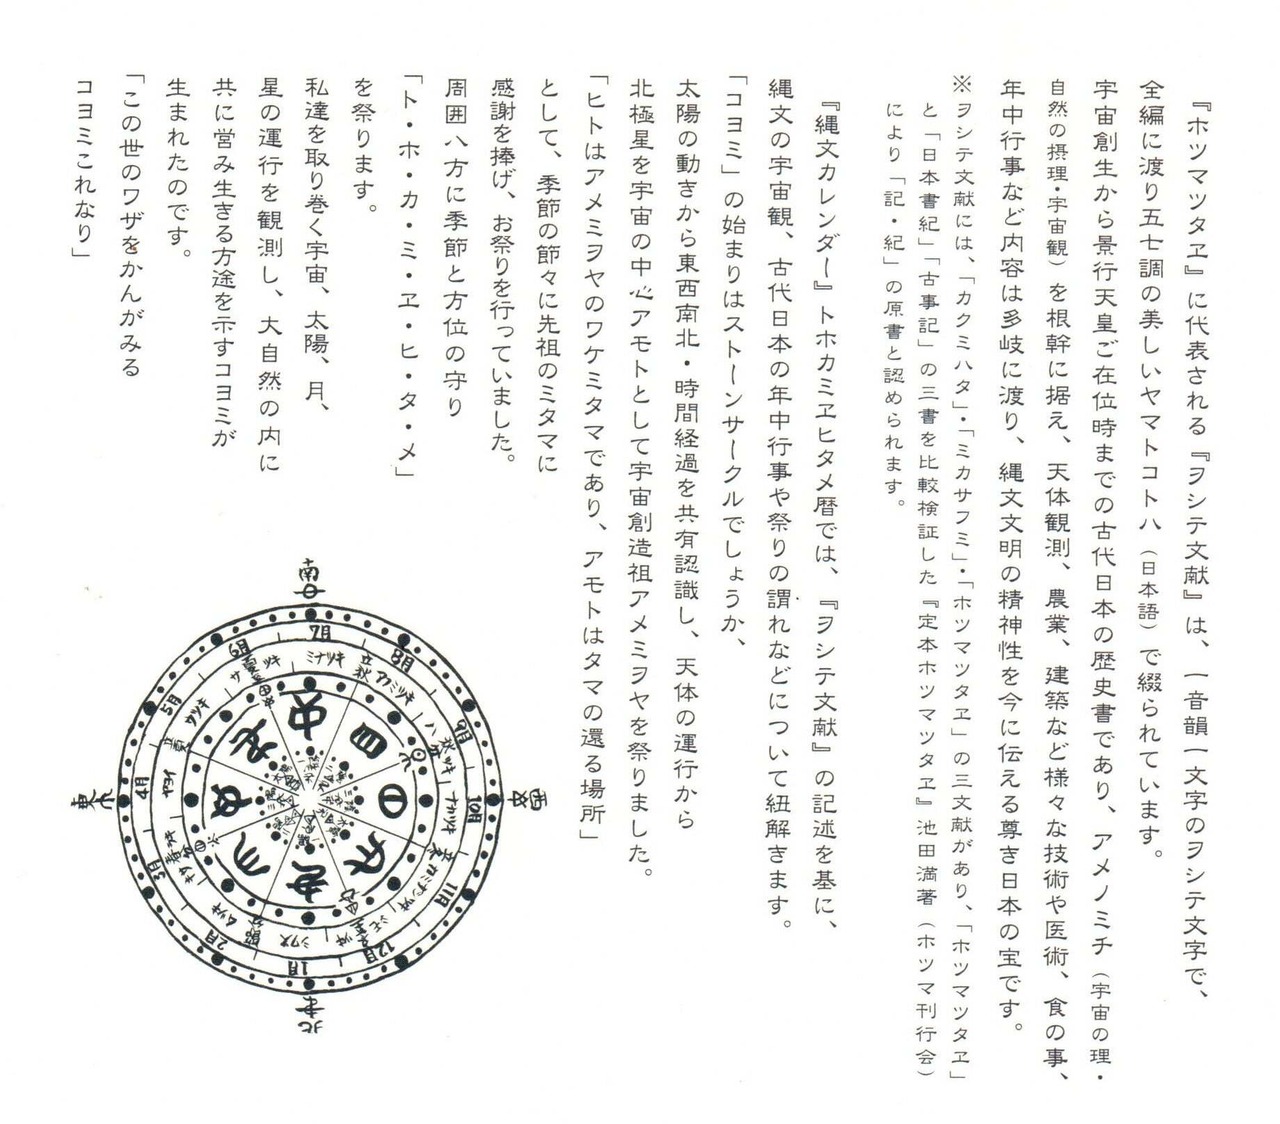 『ホツマツタヱ』に代表される『ヲシテ文献』は、一音韻一文字のヲシテ文字で、
全編に渡り五七調の美しいヤマトコトハ（日本語）で綴られています。
宇宙創生から景行天皇ご在位時までの古代日本の歴史書であり、アメノミチ（宇宙の理・
自然の摂理・宇宙観）を根幹に据え、天体観測、農業、建築など様々な技術や医術、食の事、
年中行事など内容は多岐に渡り、縄文文明の精神性を今に伝える尊き日本の宝です。
※ヲシテ文献には、「カクミハタ」・「ミカサフミ」・「ホツマツタヱ」の三文献があり、「ホツマツタヱ」
と「日本書紀」「古事記」の三書を比較検証した『定本ホツマツタヱ』池田満著（ホツマ刊行会）
により「記・紀」の原書と認められます。
『縄文カレンダー』トホカミヱヒタメ暦では、『ヲシテ文献』の記述を基に、
縄文の宇宙観、古代日本の年中行事や祭りの謂れなどについて紐解きます。
「コヨミ」の始まりはストーンサークルでしょうか、
太陽の動きから東西南北・時間経過を共有認識し、天体の運行から
北極星を宇宙の中心アモトとして宇宙創造祖アメミヲヤを祭りました。
「ヒトはアメミヲヤのワケミタマであり、アモトはタマの還る場所」
として、季節の節々に先祖のミタマに
感謝を捧げ、お祭りを行っていました。
周囲八方に季節と方位の守り
「ト・ホ・カ・ミ・ヱ・ヒ・タ・メ」
を祭ります。
私達を取り巻く宇宙、太陽、月、
星の運行を観測し、大自然の内に
共に営み生きる方途を示すコヨミが
生まれたのです。
「この世のワザをかんがみる
コヨミこれなり」
南
7月
8月
9月
10月
11月
12月
1月
2月
3月
4月
5月
6月
ミナツキ
立秋
ヤヨイ
ウツキ
ムツキ
シワス
東
西
北